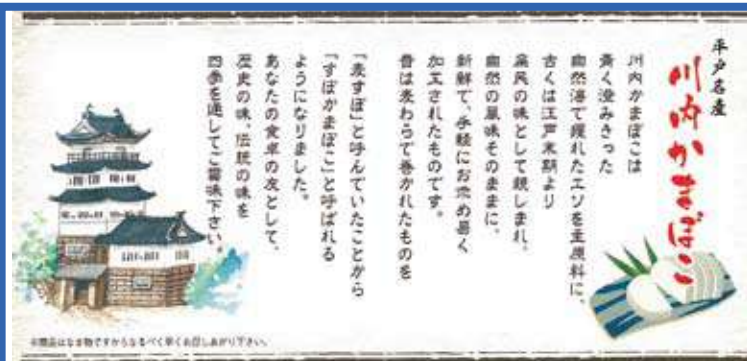 平戸名産
川内かまぼこ
川内かまぼこは
青く澄みきった
自然海で獲れたエソを主原料に、
古くは江戸末期より
庶民の味として親しまれ、
自然の風味そのままに、
新鮮で、手軽にお求め易く
加工されたものです。
昔は麦わらで巻かれたものを
「麦すぼ」と呼んでいたことから
「すぼかまぼこ」と呼ばれる
ようになりました。
あなたの食卓の友として、
歴史の味、伝統の味を
四季を通してご賞味下さい。
※商品はなま物ですからなるべく早くお召しあがり下さい。